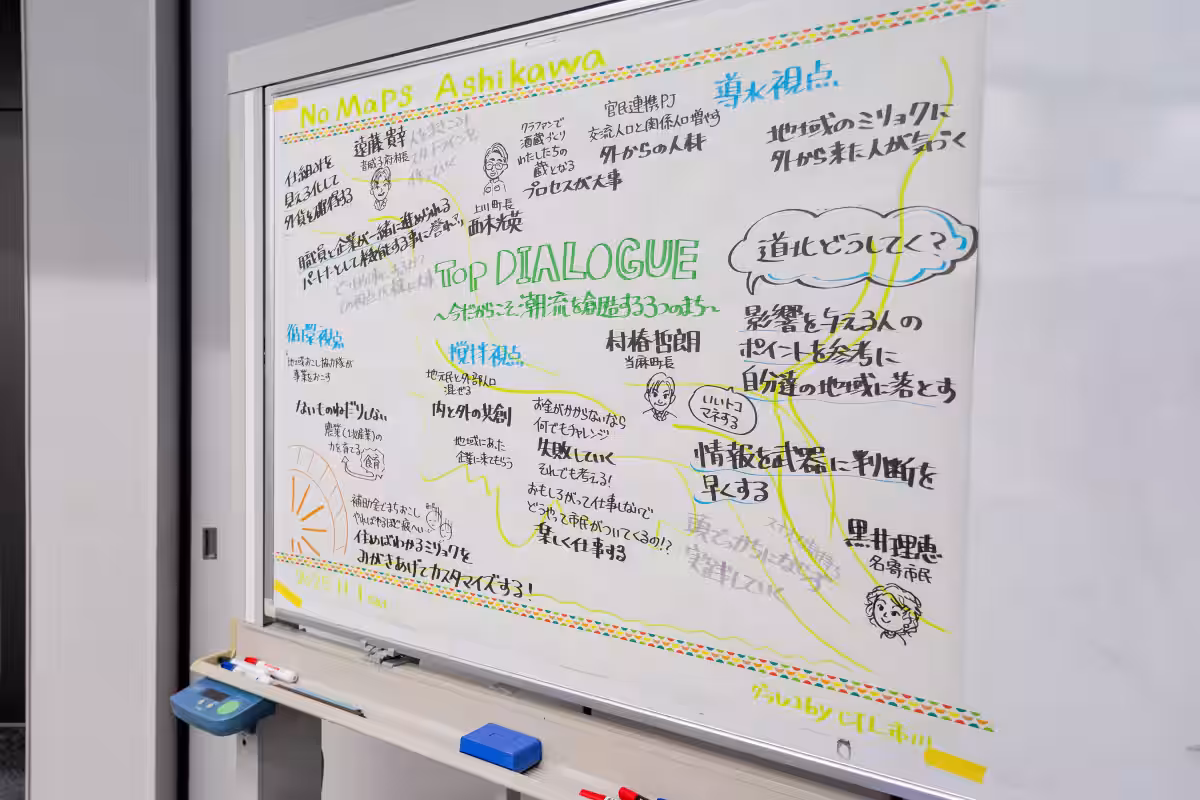 No Maps Ashikawa
遠藤貴幸
音威子府村長
仕組みを
見える化して
外貨を獲得する
職員と企業が一緒に進められる
パートナーとして機能する事に
クラファンで
酒蔵づくり
わたしたちの
蔵となる
プロセスが大事
上川町長
西木光英
官民連携PJ
交流人口と関係人口増やす
外からの人材
導水視点
地域のミリョクに
外から来た人が気づく
道北どうしてく?
Top DIALOGUE
〜今だからこそ潮流を創造する3つのまち〜
循環視点
地域おこし協力隊が
事業をおこす
ないものねだりしない
農業(1次産業)の
力を育てる
食育
補助金でまちおこし
やればやるほど疲へい
住めばわかるミリョクを
みがきあげてカスタマイズする!
撹拌視点
地元民と外部人口
混ぜる
内と外の共創
地域にあった
企業に来てもらう
村椿哲朗
当麻町長
いいトコ
マネする
お金がかからないなら
何でもチャレンジ
失敗していく
それでも考える!
おもしろがって仕事しないで
どうやって市民がついてくるの!?
楽しく仕事する
影響を与える人の
ポイントを参考に
自分達の地域に落とす
情報を武器に判断を
早くする
頭でっかちにならず
実践していく
黒井理恵
名寄市民
2025 11 1 sat
グラレコby